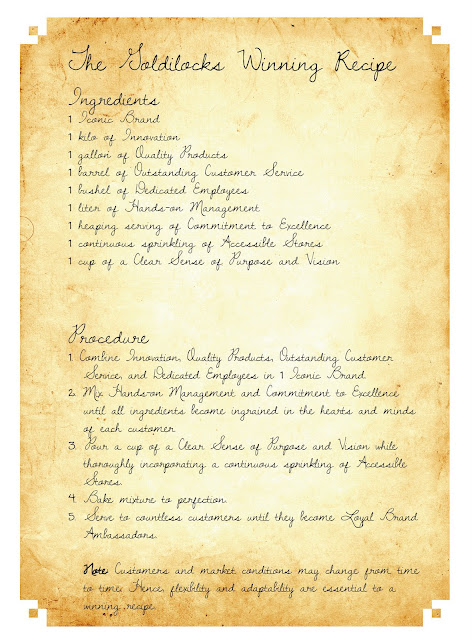 The Goldilocks Winning Recipe
Ingredients
1 Iconic Brand
1 kilo of Innovation
1 gallon of Quality Products
1 barrel of Outstanding Customer Service
1 bushel of Dedicated Employees
1 liter of Hands-on Management
1 heaping serving of Commitment to Excellence
1 continuous sprinkling of Accessible Stores
1 cup of a Clear Sense of Purpose and Vision
Procedure
1. Combine Innovation, Quality Products, Outstanding Customer
Service, and Dedicated Employees in 1 Iconic Brand
2. Mix Hands-on Management and Commitment to Excellence
until all ingredients become ingrained in the hearts and minds
of each customer
3. Pour a cup of a Clear Sense of Purpose and Vision while
thoroughly incorporating a continuous sprinkling of Accessible
Stores.
4. Bake mixture to perfection.
5. Serve to countless customers until they become Loyal Brand
Ambassadors.
Note: Customers and market conditions may change from time
to time. Hence, flexibility and adaptability are essential to a
winning recipe.